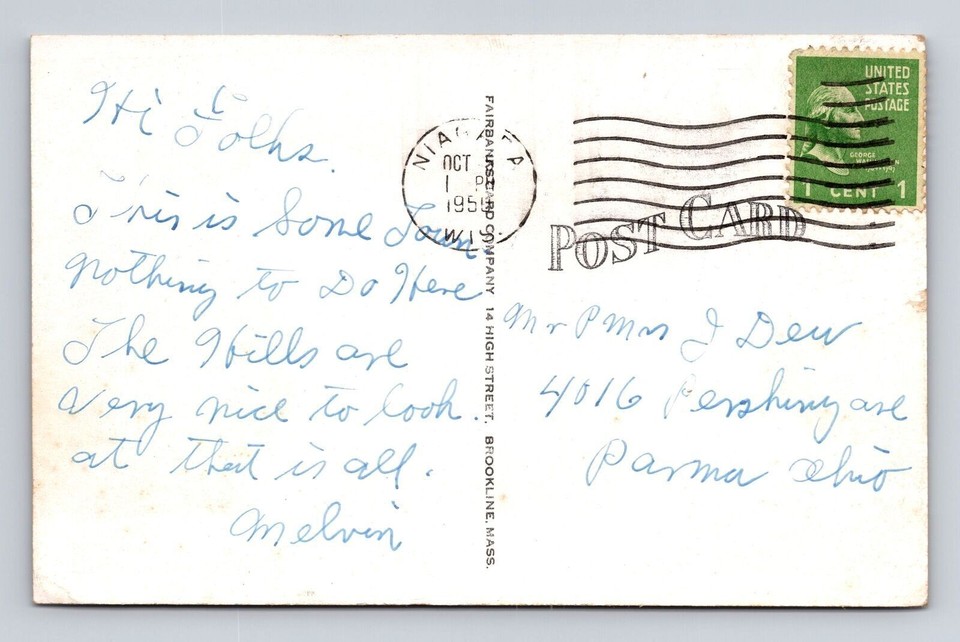 Hi Folks.
This is Some Town
nothing to Do Here
The Hills are
very nice to look.
at that is all.
Melvin
FAIRBANKS CARD COMPANY 14 HIGH STREET. BROOKLINE, MASS.
NIAGARA
OCT
1 P
195
WIS
UNITED
STATES
POSTAGE
GEORGE
WASHINGTON
1 CENT 1
POST CARD
Mr & Mrs J Dew
4016 Pershing ave
Parma Ohio